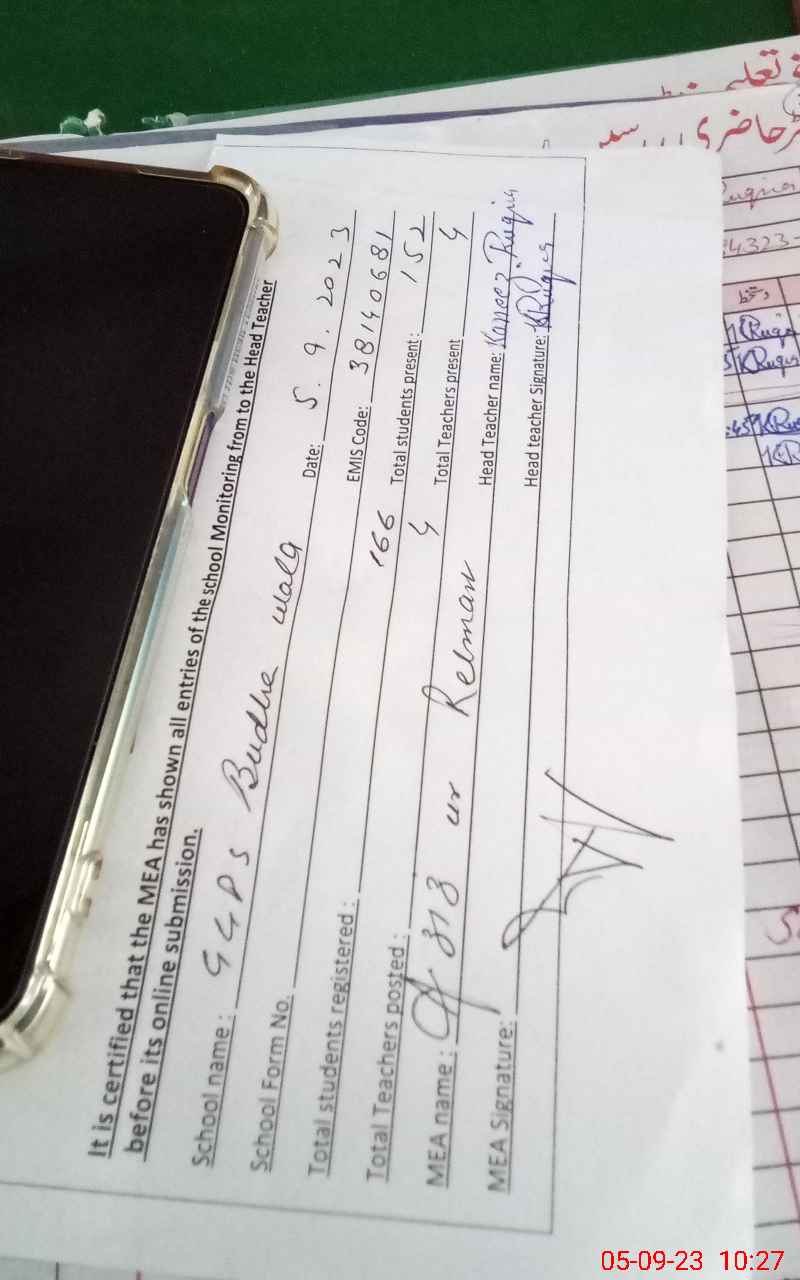 It is certified that the MEA has shown all entries of the school Monitoring from to the Head Teacher
before its online submission.
School name: GGPS Budha wala Date: 5.9.2023
School Form No. EMIS Code: 38140681
Total students registered: 166 Total students present: 152
Total Teachers posted: 4 Total Teachers present 4
MEA name: ur Rehman Head Teacher name: Ruqia
MEA Signature: Head teacher Signature: KRuqia
حاضری
دستخط
KRuqia
KRuqia
05-09-23 10:27